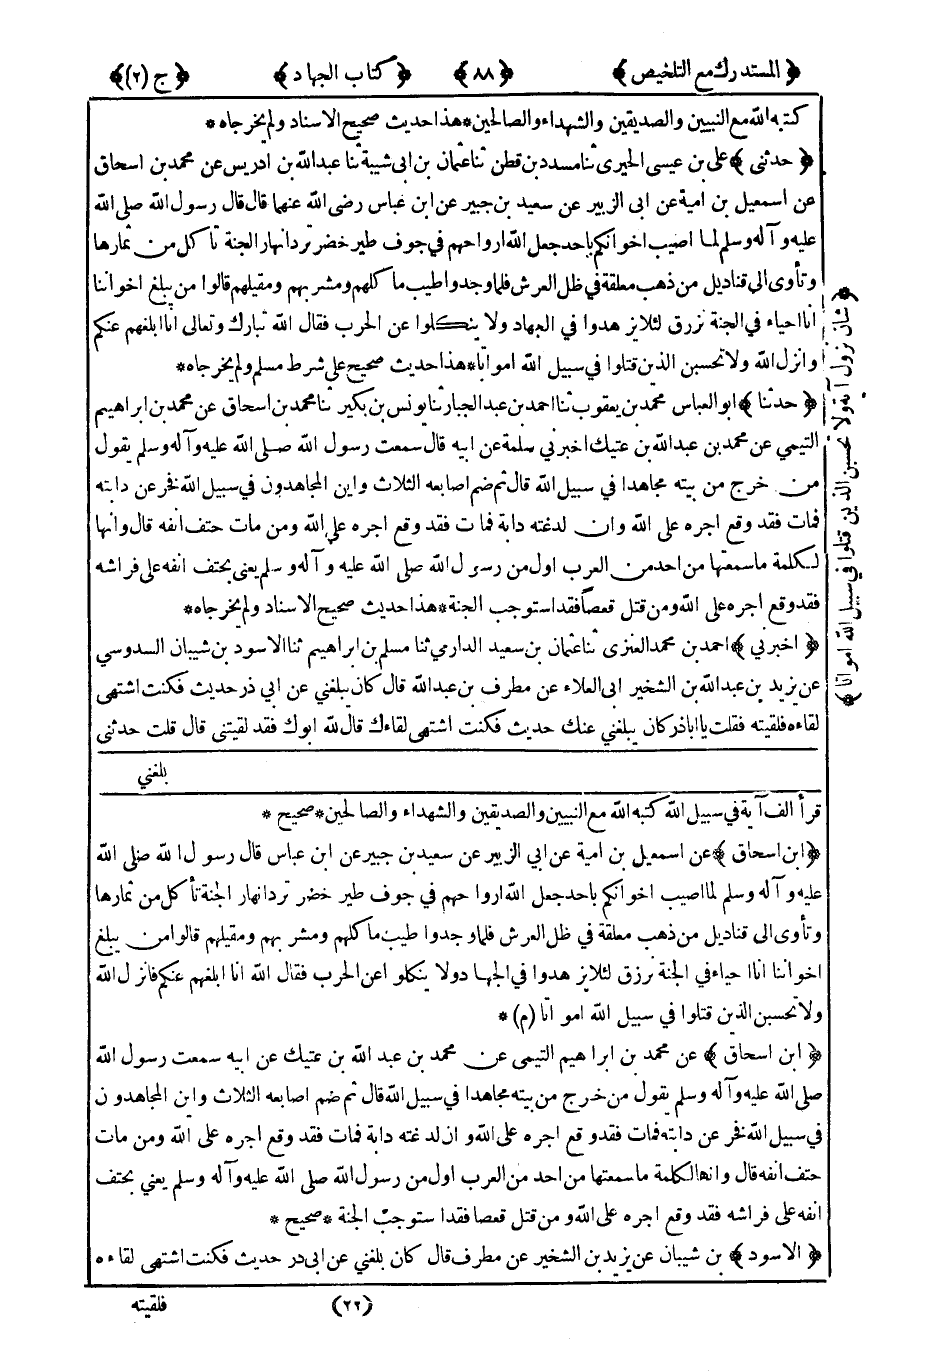 ﴿ المستدرك مع التلخيص ﴾ ﴿ ٨٨ ﴾ ﴿ كتاب الجهاد ﴾ ﴿ ج (٢) ﴾
كتبه الله مع النبيين والصديقين والشهداء والصالحين * هذا حديث صحيح الاسناد ولم يخرجاه *
﴿ حدثني ﴾ علي بن عيسى الحيرى ثنا مسدد بن قطن ثنا عثمان بن ابى شيبة ثنا عبد الله بن ادريس عن محمد بن اسحاق
عن اسمعيل بن امية عن ابى الزبير عن سعيد بن جبير عن ابن عباس رضى الله عنهما قال قال رسول الله صلى الله
عليه وآله وسلم لما اصيب اخوانكم باحد جعل الله ارواحهم في جوف طير خضر ترد انهار الجنة تأكل من ثمارها
وتأوى الى قناديل من ذهب معلقة في ظل العرش فلما وجدوا طيب مأكلهم ومشربهم ومقيلهم قالوا من يبلغ اخواننا
انا احياء في الجنة نرزق لئلا يزهدوا في الجهاد ولا ينكلوا عن الحرب فقال الله تبارك وتعالى انا ابلغهم عنكم
وانزل الله ولا تحسبن الذين قتلوا في سبيل الله امواتا * هذا حديث صحيح على شرط مسلم ولم يخرجاه *
﴿ حدثنا ﴾ ابو العباس محمد بن يعقوب ثنا احمد بن عبد الجبار ثنا يونس بن بكير ثنا محمد بن اسحاق عن محمد بن ابراهيم
التيمي عن محمد بن عبد الله بن عتيك اخبرني سلمة عن ابيه قال سمعت رسول الله صلى الله عليه وآله وسلم يقول
من خرج من بيته مجاهدا في سبيل الله قال ثم ضم اصابعه الثلاث واين المجاهدون في سبيل الله فخر عن دابته
فمات فقد وقع اجره على الله وان لدغته دابة فمات فقد وقع اجره على الله ومن مات حتف انفه قال وانها
لكلمة ما سمعتها من احد من العرب اول من رسول الله صلى الله عليه وآله وسلم يعنى بحتف انفه على فراشه
فقد وقع اجره على الله ومن قتل قعصا فقد استوجب الجنة * هذا حديث صحيح الاسناد ولم يخرجاه *
﴿ اخبرني ﴾ احمد بن محمد العنزى ثنا عثمان بن سعيد الدارمي ثنا مسلم بن ابراهيم ثنا الاسود بن شيبان السدوسي
عن يزيد بن عبد الله بن الشخير ابى العلاء عن مطرف بن عبد الله قال كان يبلغني عن ابي ذر حديث فكنت اشتهى
لقاءه فلقيته فقلت يا اباذر كان يبلغني عنك حديث فكنت اشتهى لقاءك قال لله ابوك فقد لقيتنى قال قلت حدثنى
بلغني
﴿ شان نزول آية ولا تحسبن الذين قتلوا في سبيل الله امواتا ﴾
قرأ الف آية في سبيل الله كتبه الله مع النبيين والصديقين والشهداء والصالحين * صحيح *
﴿ ابن اسحاق ﴾ عن اسمعيل بن امية عن ابي الزبير عن سعيد بن جبير عن ابن عباس قال رسول الله صلى الله
عليه وآله وسلم لما اصيب اخوانكم باحد جعل الله ارواحهم في جوف طير خضر ترد انهار الجنة تأكل من ثمارها
وتأوى الى قناديل من ذهب معلقة في ظل العرش فلما وجدوا طيب مأكلهم ومشربهم ومقيلهم قالوا من يبلغ
اخواننا انا احياء في الجنة نرزق لئلا يزهدوا في الجهاد ولا ينكلوا عن الحرب فقال الله انا ابلغهم عنكم فانزل الله
ولا تحسبن الذين قتلوا في سبيل الله امواتا (م) *
﴿ ابن اسحاق ﴾ عن محمد بن ابراهيم التيمى عن محمد بن عبد الله بن عتيك عن ابيه سمعت رسول الله
صلى الله عليه وآله وسلم يقول من خرج من بيته مجاهدا في سبيل الله قال ثم ضم اصابعه الثلاث واين المجاهدون
في سبيل الله فخر عن دابته فمات فقد وقع اجره على الله وان لدغته دابة فمات فقد وقع اجره على الله ومن مات
حتف انفه قال وانها لكلمة ما سمعتها من احد من العرب اول من رسول الله صلى الله عليه وآله وسلم يعني بحتف
انفه على فراشه فقد وقع اجره على الله ومن قتل قعصا فقد استوجب الجنة * صحيح *
﴿ الاسود ﴾ بن شيبان عن يزيد بن الشخير عن مطرف قال كان بلغني عن ابى در حديث فكنت اشتهى لقاءه
(٢٢) فلقيته